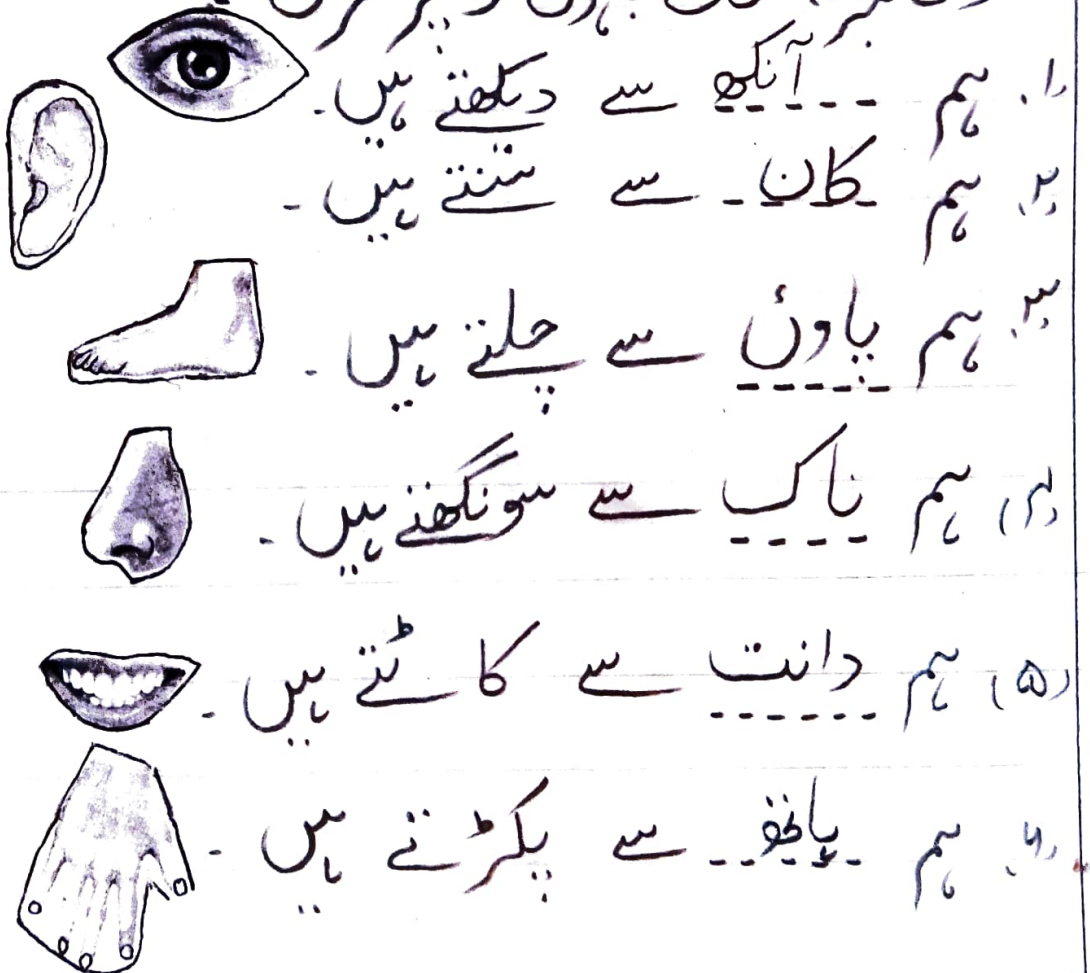 ۱. ہم آنکھ سے دیکھتے ہیں۔
۲. ہم کان سے سنتے ہیں۔
۳. ہم پاوئں سے چلتے ہیں۔
(۴) ہم ناک سے سونگھتے ہیں۔
(۵) ہم دانت سے کاٹتے ہیں۔
۶. ہم ہاتھ سے پکڑتے ہیں۔